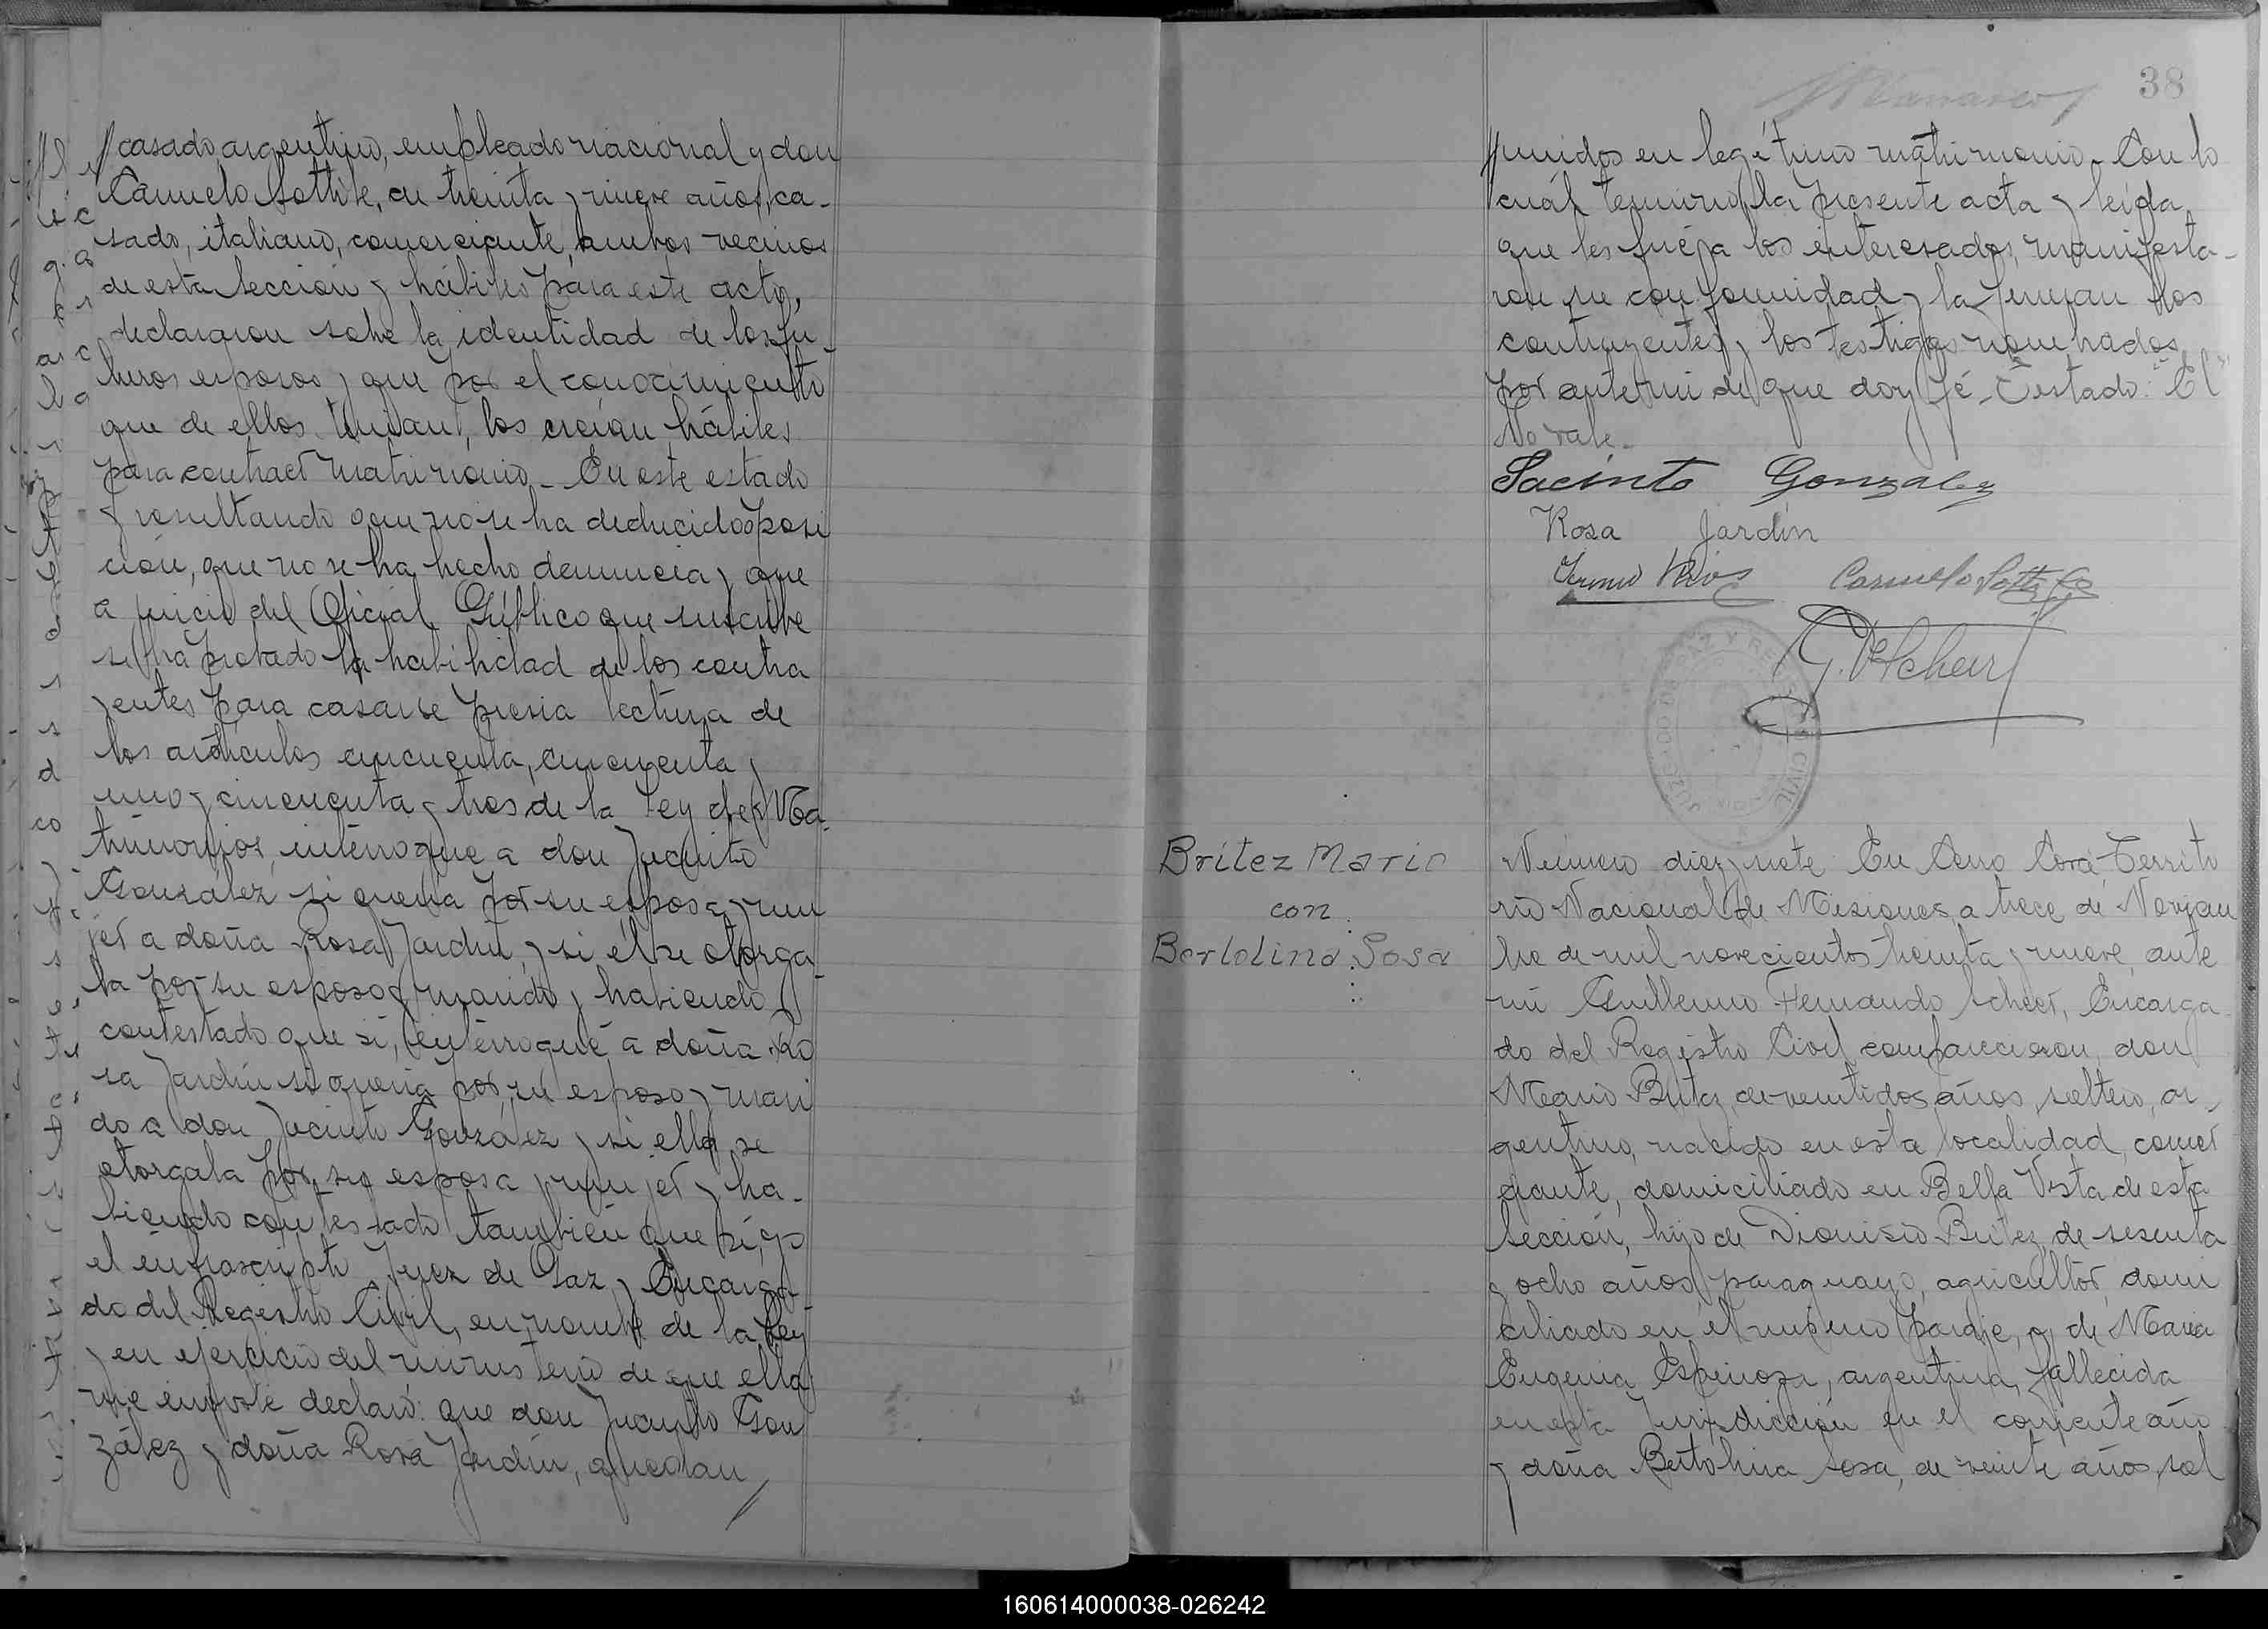 casado, argentino, empleado nacional y don
Carmelo Sottile, de treinta y nueve años, ca-
sado, italiano, comerciante, ambos vecinos
de esta Sección y hábiles para este acto,
declararon sobre la identidad de los fu-
turos esposos y que por el conocimiento
que de ellos tenían, los creían hábiles
para contraer matrimonio_ En este estado
y resultando que no se ha deducido oposi
ción, que no se ha hecho denuncia y que
a juicio del Oficial Público que suscribe
se ha probado la habilidad de los contra
yentes para casarse previa lectura de
los artículos cincuenta, cincuenta y
uno y cincuenta y tres de la Ley de Ma-
trimonios, interrogué a don Jacinto
González si quería por su esposa y mu
jer a doña Rosa Jardín y si él se otorga-
ba por su esposo y marido y habiendo
contestado que sí, interrogué a doña Ro
sa Jardín si quería por su esposo y mari
do a don Jacinto González y si ella se
otorgaba por su esposa y mujer y ha-
biendo contestado también que sí, yo
el infrascripto Juez de Paz y Encarga-
do del Registro Civil, en nombre de la Ley
y en ejercicio del ministerio de que ella
me inviste declaro: que don Jacinto Gon
zález y doña Rosa Jardín, quedan
38
unidos en legítimo matrimonio_ Con lo
cuál terminó la presente acta y leída
que les fué a los interesados, manifesta-
ron su conformidad y la firman los
contrayentes y los testigos nombrados
por ante mi de que doy fé_ Testado: "El"
No vale_
Jacinto Gonzalez
Rosa Jardín
Rios Carmelo Sottile
G. F. Scheer
JUZGADO DE PAZ Y REGISTRO CIVIL
Britez Mario
con
Bertolina Sosa
Número diez y siete En Cerro Corá, Territo
rio Nacional de Misiones, a trece de Noviem
bre de mil novecientos treinta y nueve, ante
mi Guillermo Fernando Scheer, Encarga-
do del Registro Civil comparecieron, don
Mario Britez, de veintidos años, soltero, ar-
gentino, nacido en esta localidad, comer
ciante, domiciliado en Bella Vista de esta
Sección, hijo de Dionisio Britez, de sesenta
y ocho años, paraguayo, agricultor, domi
ciliado en el mismo paraje, y de Maria
Eugenia Espinoza, argentina, fallecida
en esta Jurisdicción en el corriente año
y doña Bertolina Sosa, de veinte años, sol
160614000038-026242